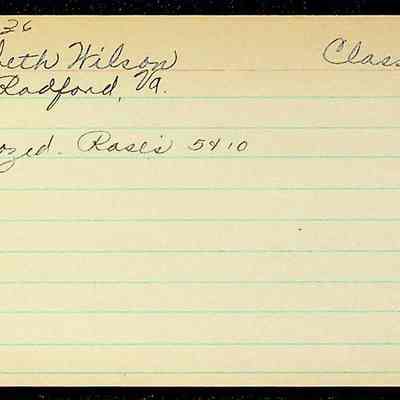 26
beth Wilson Class
Radford, Va.
ozed. Roses 5410